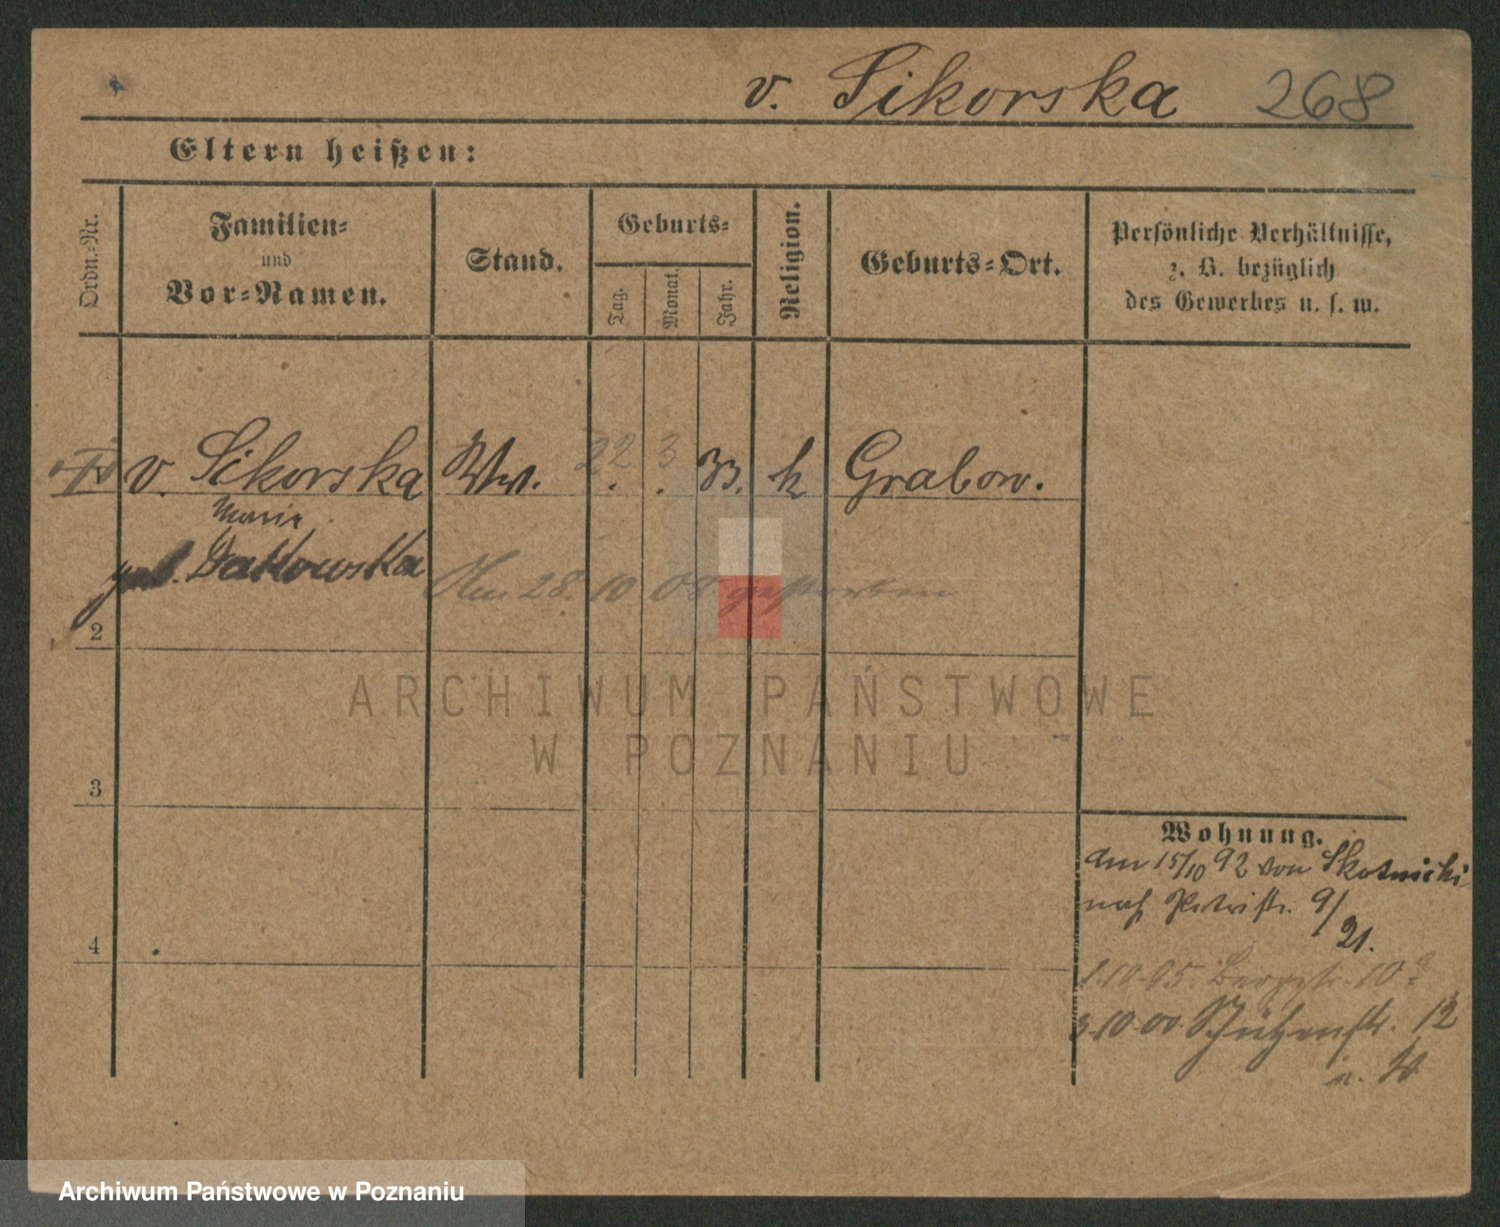 v. Sikorska 268
Eltern heißen:
Ordn.-Nr.
Familien-
und
Vor-Namen.
Stand.
Geburts-
Tag.
Monat.
Jahr.
Religion.
Geburts-Ort.
Persönliche Verhältnisse,
z. B. bezüglich
des Gewerbes u. s. w.
v. Sikorska Ww. 22. 3. 33. k Grabow.
Maria
geb.
Am 28 10 gestorben
2
ARCHIWUM PAŃSTWOWE
W POZNANIU
3
Wohnung.
Am 15/10 92 von Skotnicki
nach Petristr. 9/
21.
4
1.10.95. Bergstr. 10a
3.10.00 Schützenstr. 12
Archiwum Państwowe w Poznaniu